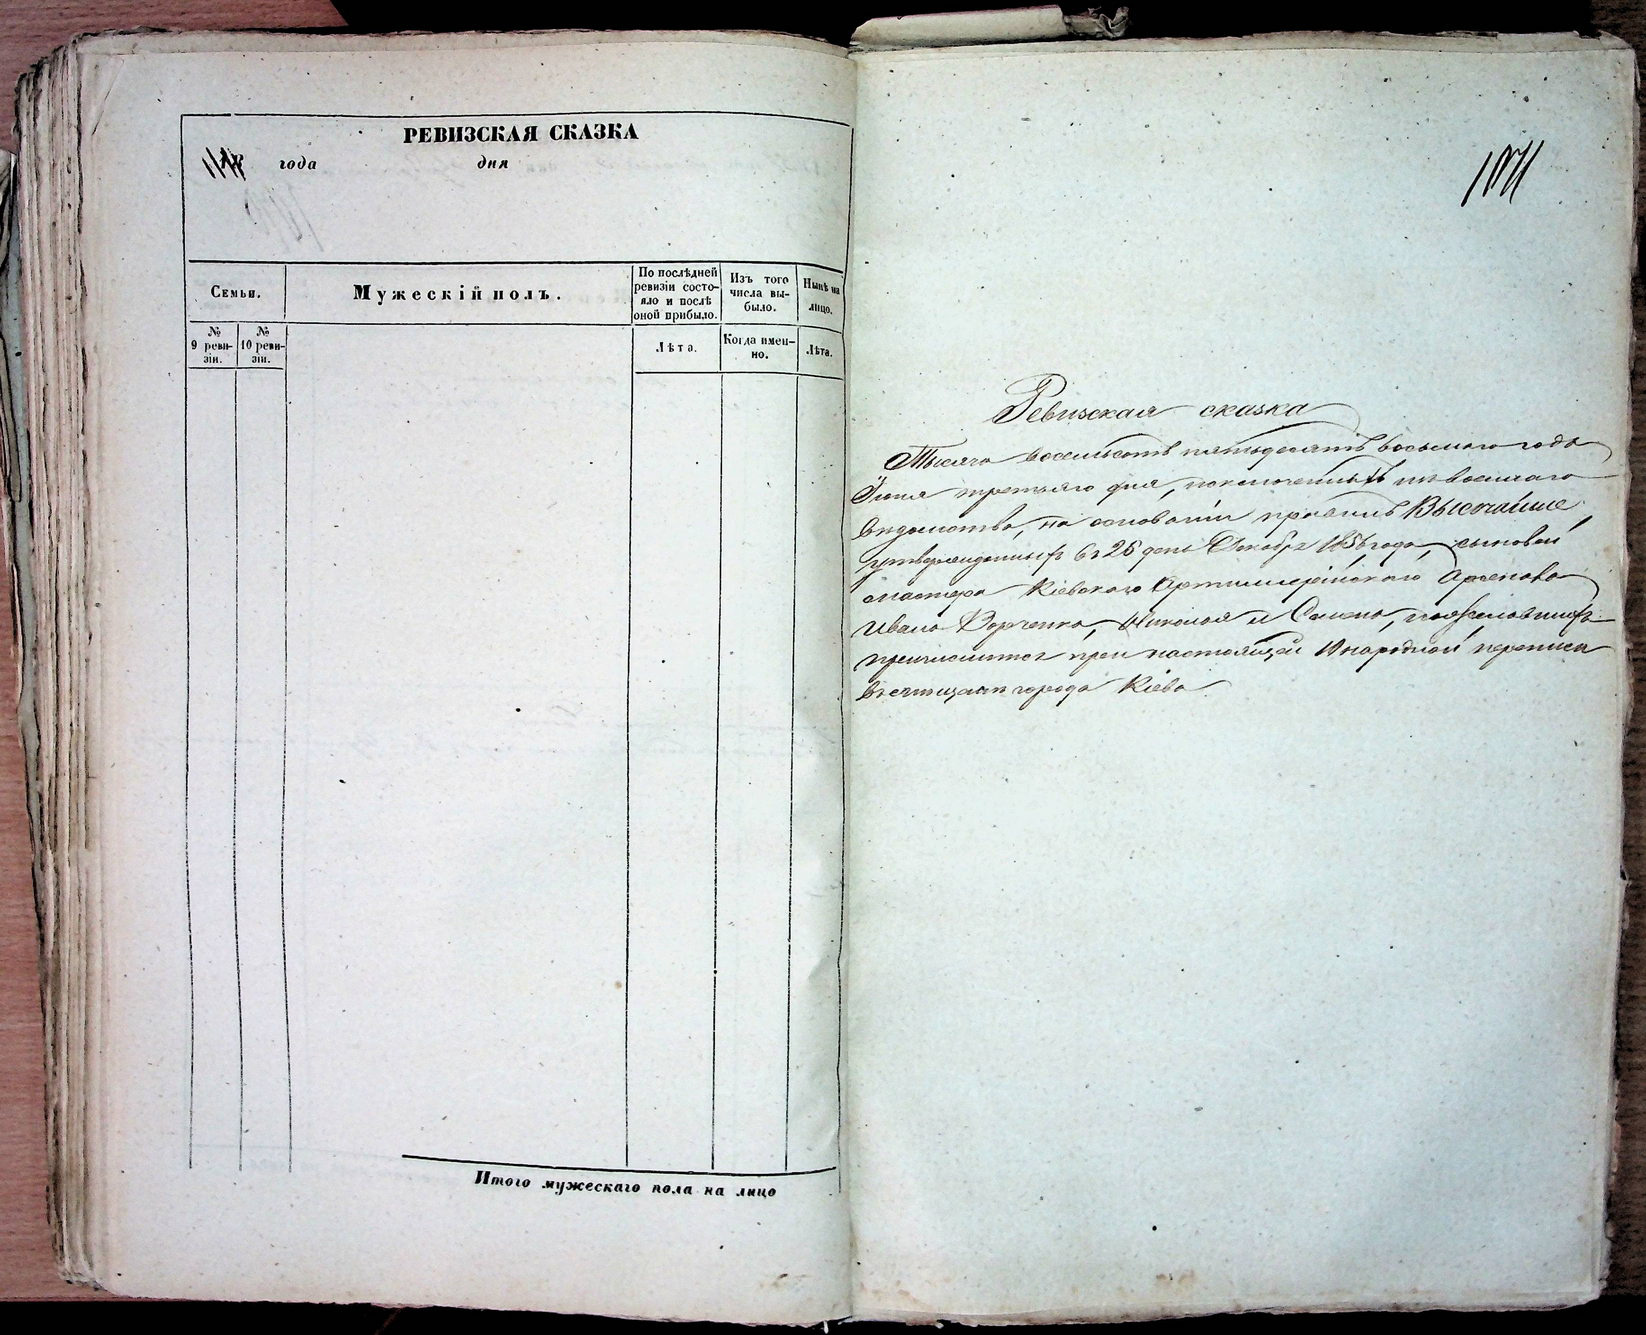 РЕВИЗСКАЯ СКАЗКА
года дня
Семьи.
Мужескій полъ.
По послѣдней ревизіи состояло и послѣ оной прибыло.
Изъ того числа выбыло.
Нынѣ на лицо.
№ 9 ревизіи.
№ 10 ревизіи.
Лѣта.
Когда именно.
Лѣта.
Итого мужескаго пола на лицо
Ревизская сказка
Тысяча восемьсотъ пятьдесятъ восьмаго года
Іюня третьяго дня, изъ военнаго
вѣдомства, на основаніи правилъ Высочайше
утвержденныхъ въ 25 день Декабря 1856 года, сыновей
мастера Кіевскаго Артиллерійскаго Арсенала
Ивана Николая и пожелавшихъ
при настоящей 10 народной переписи
города Кіева